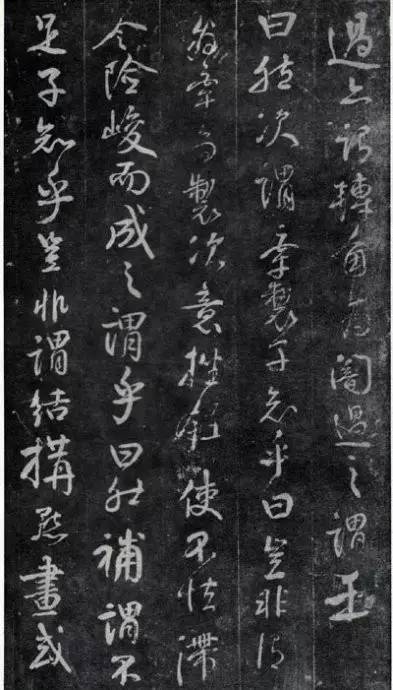 過亦謂轉角為闇過之謂乎
曰然決謂牽製子知乎曰豈非謂
牽為製決意挫鋒使不怯滯
令險峻而成之謂乎曰然補謂不
足子知乎豈非謂結構點畫或